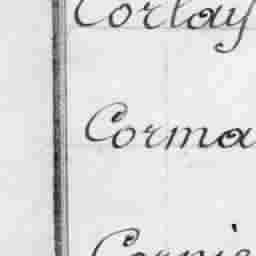 Corlay
Corma
Cornic